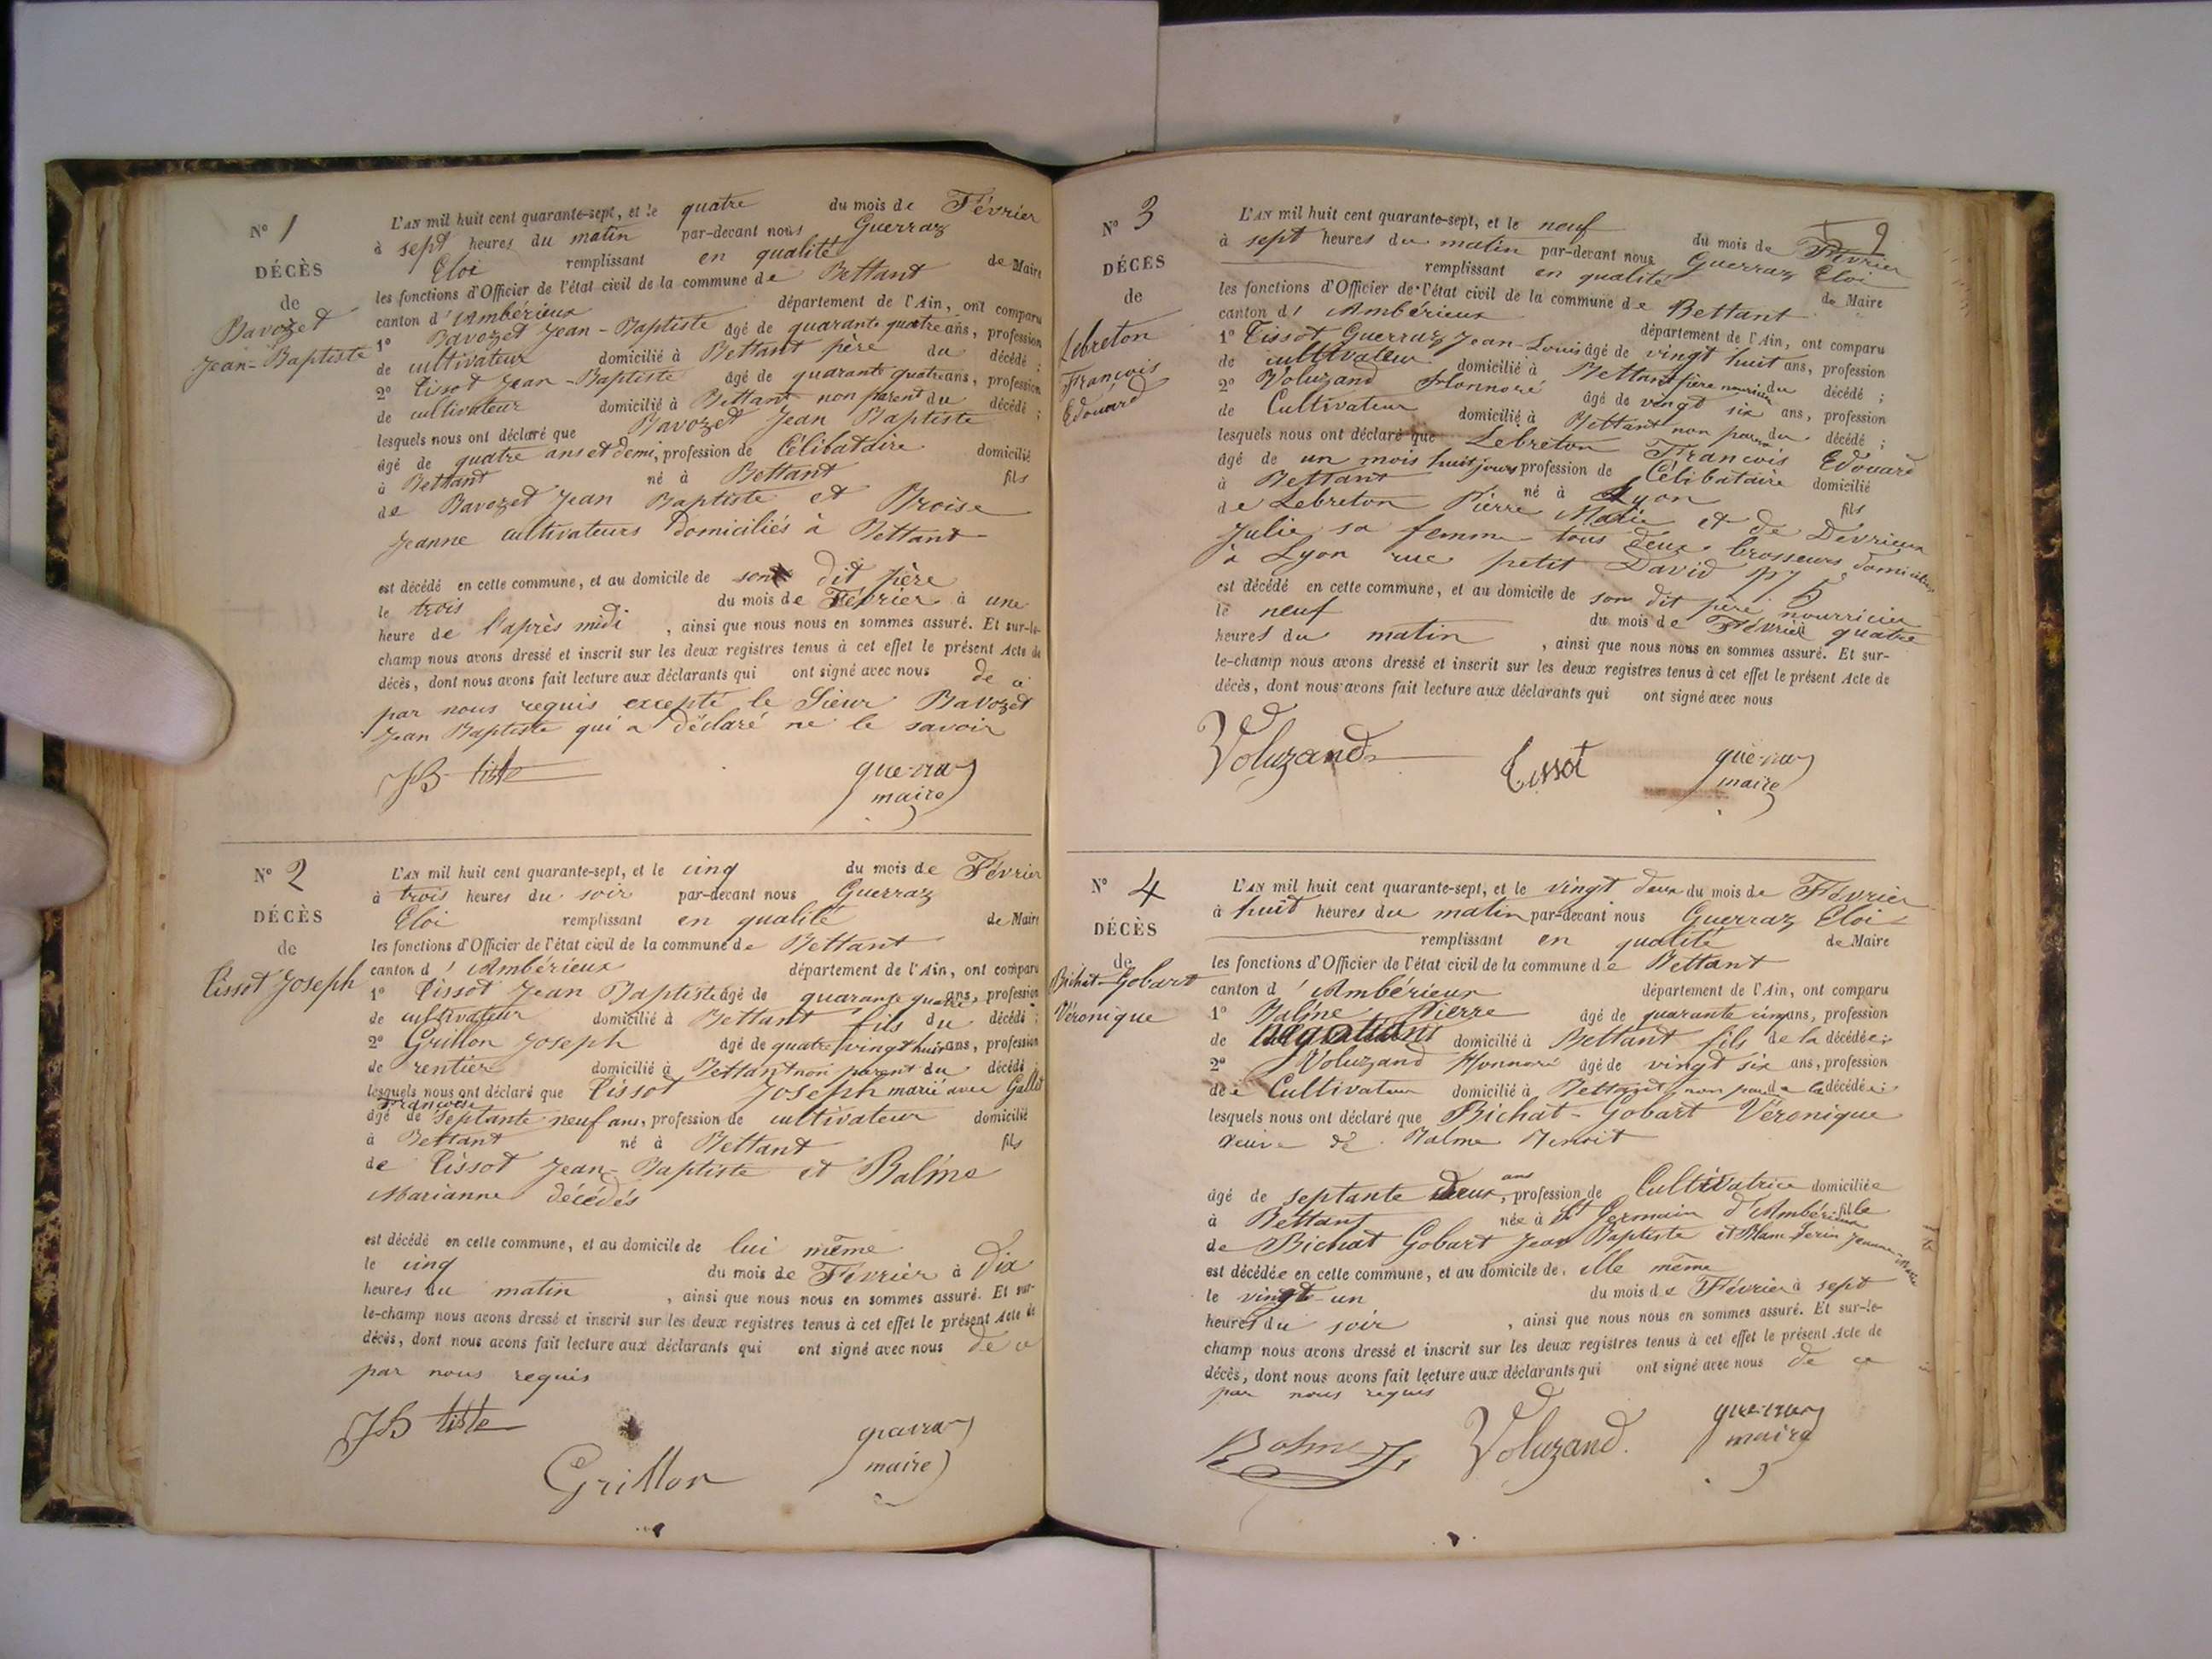 N° 1
DÉCÈS
de
Bavozet
Jean-Baptiste
L'AN mil huit cent quarante-sept, et le quatre du mois de Février
à sept heures du matin par-devant nous Guerraz
Eloi remplissant en qualité de Maire
les fonctions d'Officier de l'état civil de la commune de Bettant
canton d'Ambérieux département de l'Ain, ont comparu
1° Bavozet Jean-Baptiste âgé de quarante quatre ans, profession
de cultivateur domicilié à Bettant père du décédé ;
2° Tissot Jean-Baptiste âgé de quarante quatre ans, profession
de cultivateur domicilié à Bettant non parent du décédé ;
lesquels nous ont déclaré que Bavozet Jean Baptiste
âgé de quatre ans et demi, profession de Célibataire domicilié
à Bettant né à Bettant fils
de Bavozet Jean Baptiste et Broise
Jeanne cultivateurs domiciliés à Bettant
est décédé en cette commune, et au domicile de son dit père
le trois du mois de Février à une
heure de l'après midi , ainsi que nous nous en sommes assuré. Et sur-le-
champ nous avons dressé et inscrit sur les deux registres tenus à cet effet le présent Acte de
décès, dont nous avons fait lecture aux déclarants qui ont signé avec nous de ce
par nous requis excepté le Sieur Bavozet
Jean Baptiste qui a déclaré ne le savoir
JB tisto guerraz
maire
N° 2
DÉCÈS
de
Tissot Joseph
L'AN mil huit cent quarante-sept, et le cinq du mois de Février
à trois heures du soir par-devant nous Guerraz
Eloi remplissant en qualité de Maire
les fonctions d'Officier de l'état civil de la commune de Bettant
canton d'Ambérieux département de l'Ain, ont comparu
1° Tissot Jean Baptiste âgé de quarante quatre ans, profession
de cultivateur domicilié à Bettant fils du décédé ;
2° Grillon Joseph âgé de quatre vingt huit ans, profession
de rentier domicilié à Bettant non parent du décédé ;
lesquels nous ont déclaré que Tissot Joseph marié avec Gallet
Françoise
âgé de septante neuf ans, profession de cultivateur domicilié
à Bettant né à Bettant fils
de Tissot Jean-Baptiste et Balme
Marianne décédés
est décédé en cette commune, et au domicile de lui même
le cinq du mois de Février à Dix
heures du matin , ainsi que nous nous en sommes assuré. Et sur-
le-champ nous avons dressé et inscrit sur les deux registres tenus à cet effet le présent Acte de
décès, dont nous avons fait lecture aux déclarants qui ont signé avec nous de ce
par nous requis
JB tisto guerraz
Grillon maire
N° 3
DÉCÈS
de
Lebreton
François
Edouard
9
L'AN mil huit cent quarante-sept, et le neuf du mois de Février
à sept heures du matin par-devant nous Guerraz Eloi
remplissant en qualité de Maire
les fonctions d'Officier de l'état civil de la commune de Bettant
canton d'Ambérieux département de l'Ain, ont comparu
1° Tissot Guerraz Jean-Louis âgé de vingt huit ans, profession
de cultivateur domicilié à Bettant père nourricier du décédé ;
2° Voluzand Honnoré âgé de vingt six ans, profession
de Cultivateur domicilié à Bettant non parent du décédé ;
lesquels nous ont déclaré que Lebreton François Edouard
âgé de un mois huit jours profession de Célibataire domicilié
à Bettant né à Lyon fils
de Lebreton Pierre Marie et de Devrieux
Julie sa femme tous deux brosseurs domiciliés
à Lyon rue petit David N° 5
est décédé en cette commune, et au domicile de son dit père nourricier
le neuf du mois de Février quatre
heures du matin , ainsi que nous nous en sommes assuré. Et sur-
le-champ nous avons dressé et inscrit sur les deux registres tenus à cet effet le présent Acte de
décès, dont nous avons fait lecture aux déclarants qui ont signé avec nous
Voluzand Tissot guerraz
maire
N° 4
DÉCÈS
de
Bichat-Gobart
Véronique
L'AN mil huit cent quarante-sept, et le vingt deux du mois de Février
à huit heures du matin par-devant nous Guerraz Eloi
remplissant en qualité de Maire
les fonctions d'Officier de l'état civil de la commune de Bettant
canton d'Ambérieux département de l'Ain, ont comparu
1° Balme Pierre âgé de quarante cinq ans, profession
de négotiant domicilié à Bettant fils de la décédée ;
2° Voluzand Honnoré âgé de vingt six ans, profession
de Cultivateur domicilié à Bettant, non parent de la décédée ;
lesquels nous ont déclaré que Bichat-Gobart Véronique
veuve de Balme Benoit
âgé de septante deux ans, profession de Cultivatrice domiciliée
à Bettant née à St Germain d'Ambérieux fille
de Bichat Gobart Jean Baptiste et Jeanne-Marie
est décédée en cette commune, et au domicile de elle même
le vingt-un du mois de Février à sept
heures du soir , ainsi que nous nous en sommes assuré. Et sur-le-
champ nous avons dressé et inscrit sur les deux registres tenus à cet effet le présent Acte de
décès, dont nous avons fait lecture aux déclarants qui ont signé avec nous de ce
par nous requis
Balme Voluzand guerraz
maire